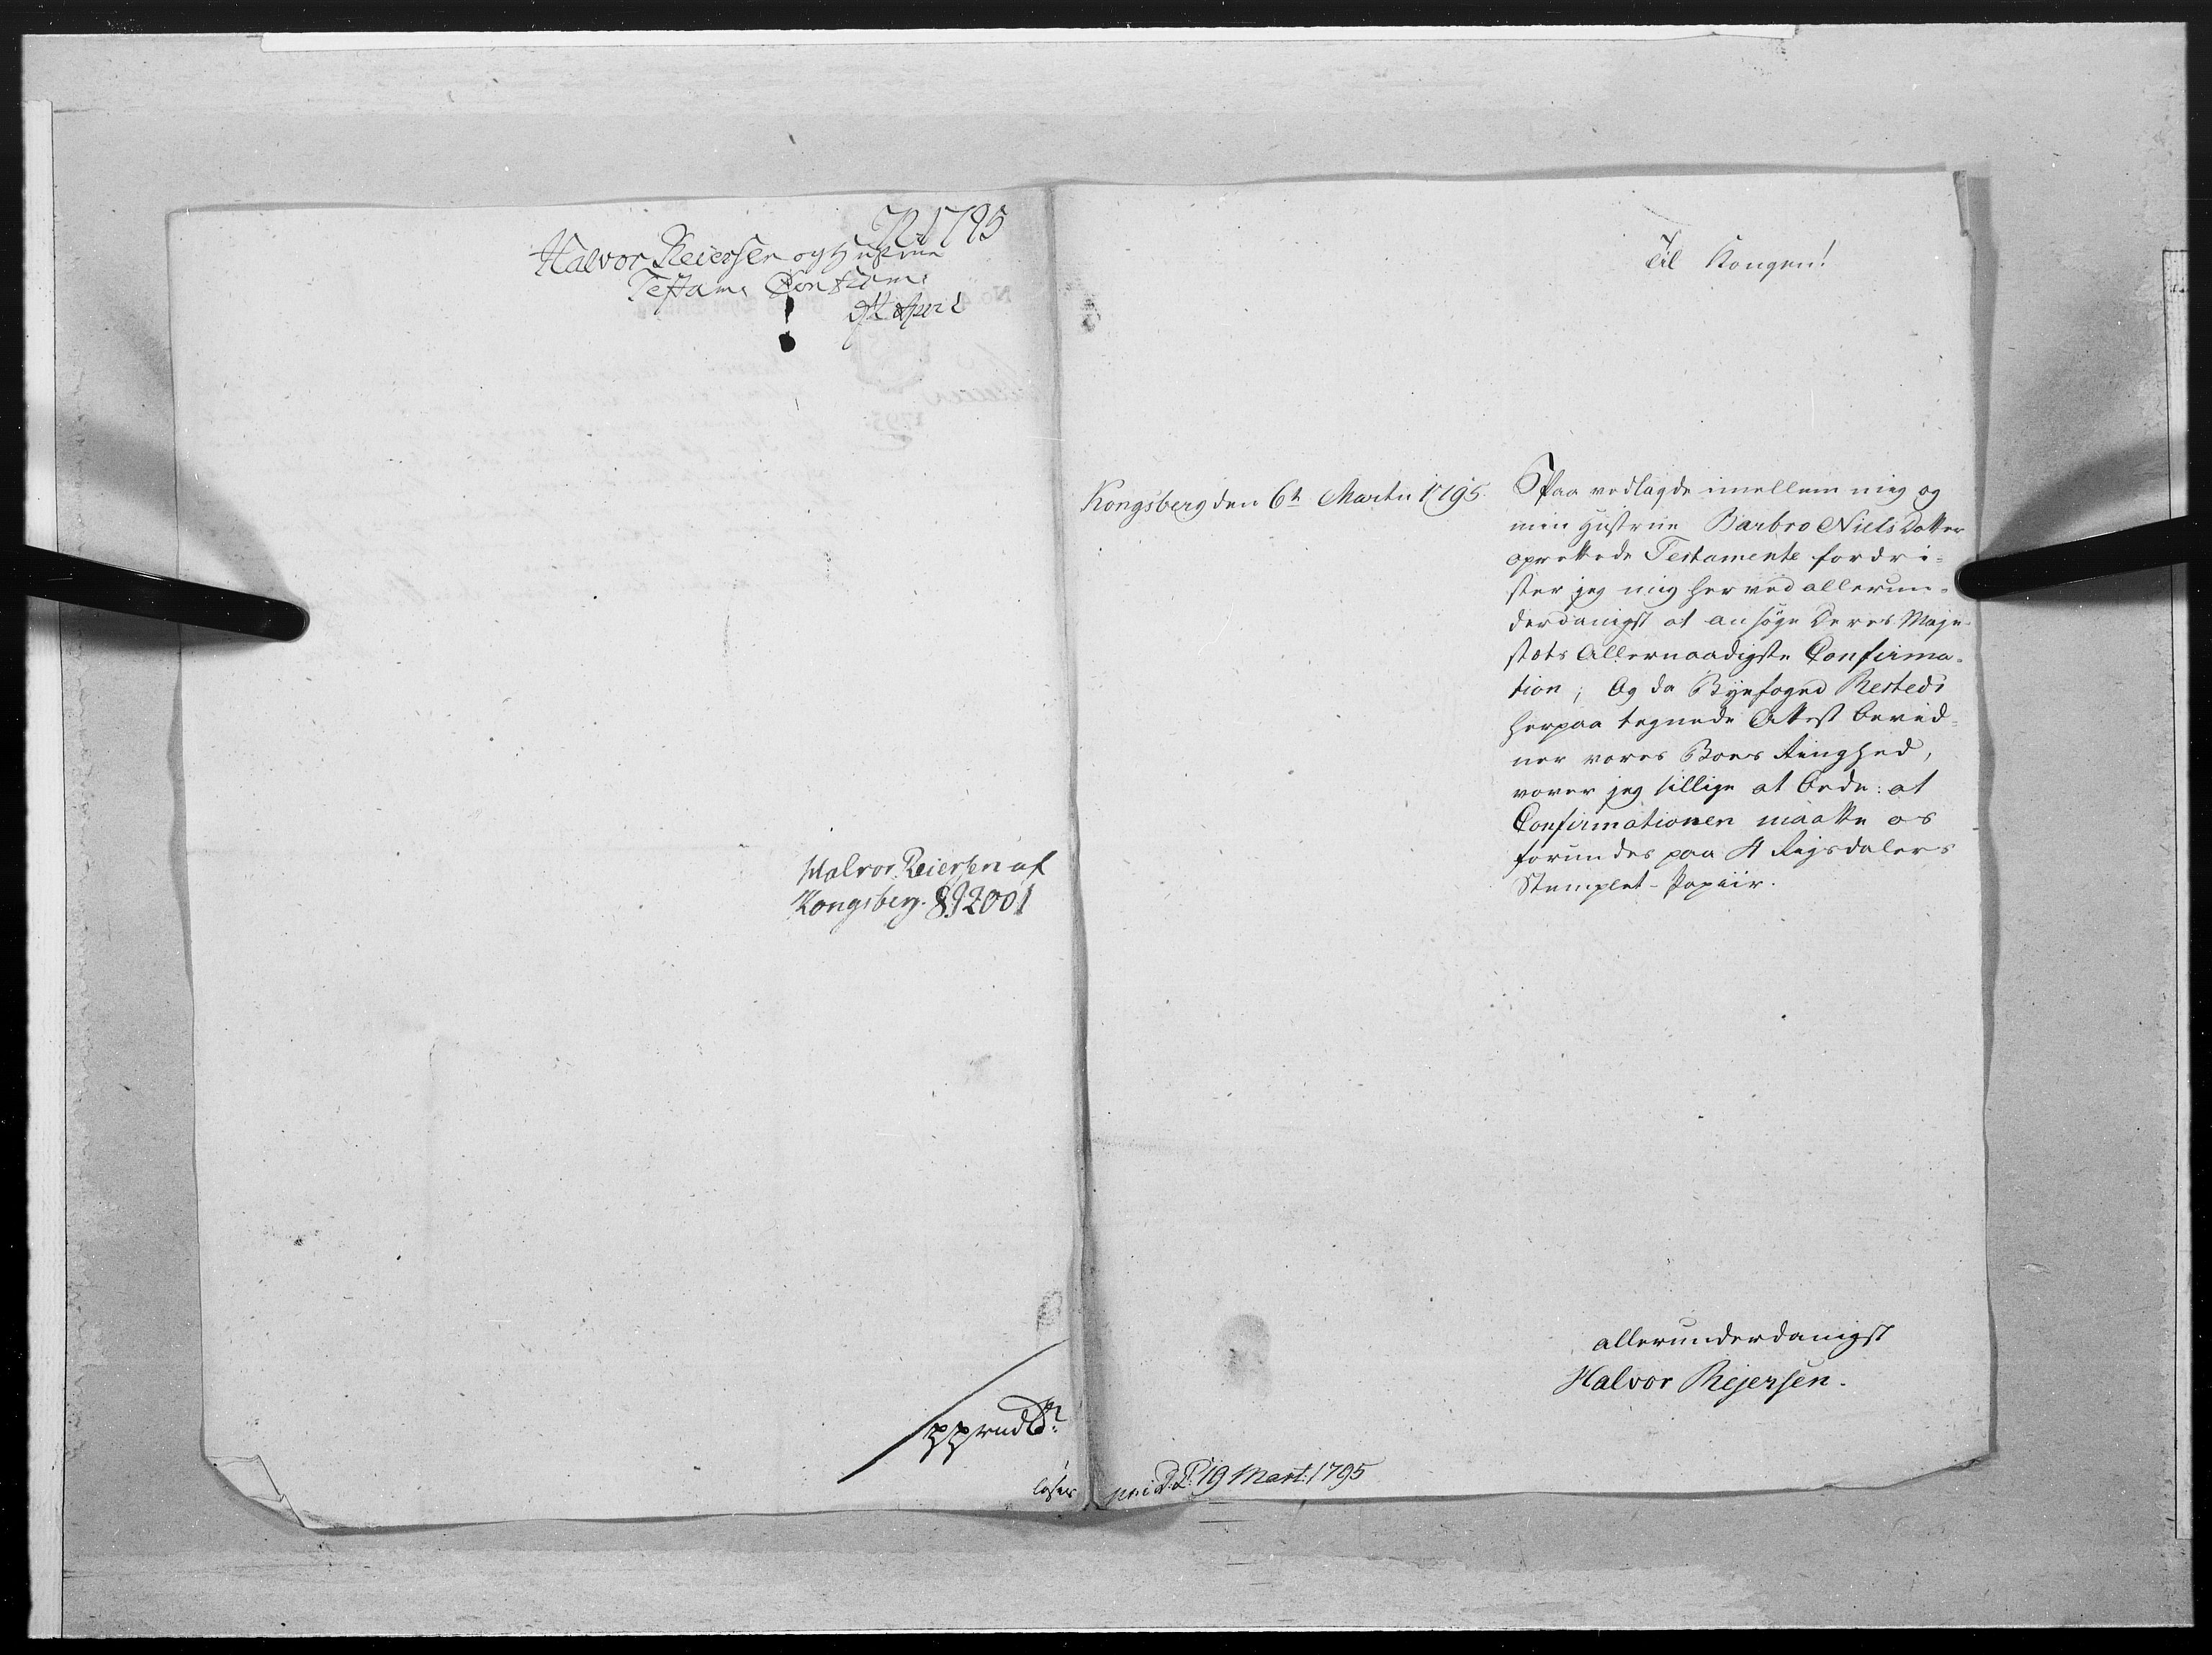 1795
Halvor Reiersen og Hustrue
Testam: Confirm:
April
Halvor Reiersen af
Kongsberg.
Til Kongen!
Kongsberg den 6te Martii 1795.
Paa vedlagde imellem mig og
min Hustrue Barbro Niels Datter
oprettede Testamente fordri-
ster jeg mig herved allerun-
derdanigst at ansöge Deres Maje-
stæts Allernaadigste Confirma-
tion; Og da Byefoged Resteds
herpaa tegnede Attest bevid-
ner vores Boes Ringhed,
vover jeg tillige at bede: at
Confirmationen maatte os
forundes paa Rigsdalers
Stemplet-Papiir.
allerunderdanigst
Halvor Rejersen.
19 Mart: 1795